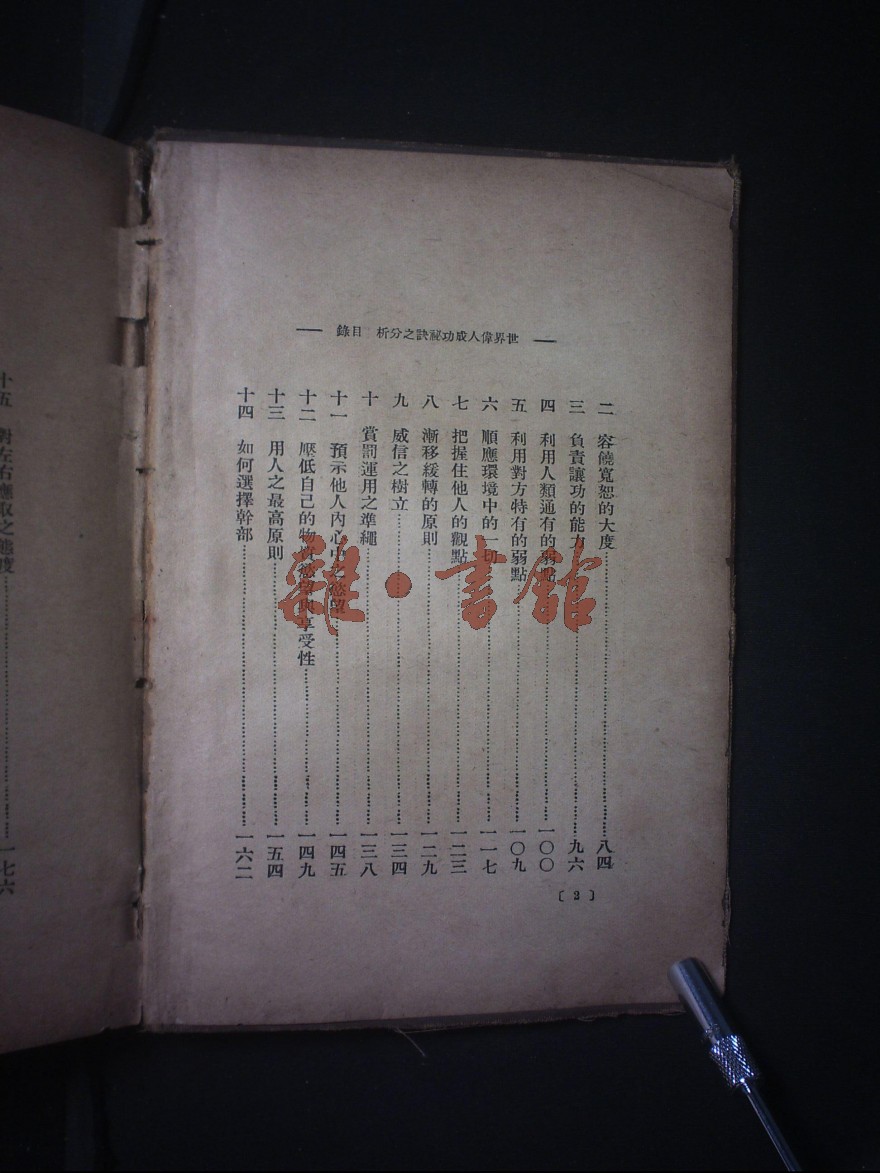 世界偉人成功祕訣之分析 目錄
二 容饒寬恕的大度……八四
三 負責讓功的能力……九六
四 利用人類通有的弱點……一〇〇
五 利用對方特有的弱點……一〇九
六 順應環境中的一切……一一七
七 把握住他人的觀點……一二三
八 漸移緩轉的原則……一二九
九 威信之樹立……一三四
十 賞罰運用之準繩……一三八
十一 預示他人內心中之慾望……一四五
十二 壓低自己的物質慾望與享受性……一四九
十三 用人之最高原則……一五四
十四 如何選擇幹部……一六二
〔2〕
十五 對左右應取之態度……一七六
雜·書館